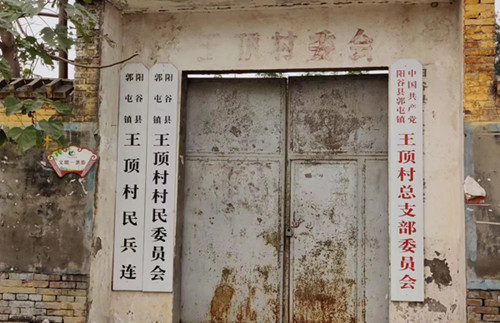 王顶村委会
阳谷县
郭屯镇
王顶村民兵连
阳谷县
郭屯镇
王顶村村民委员会
中国共产党
阳谷县郭屯镇
王顶村总支部委员会